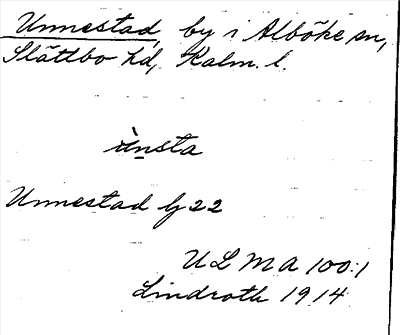 Unnestad, by i Alböke sn,
Slättbo hd, Kalm. l.
ùnsta
Unnestad by 22
ULMA 100:1
Lindroth 1914